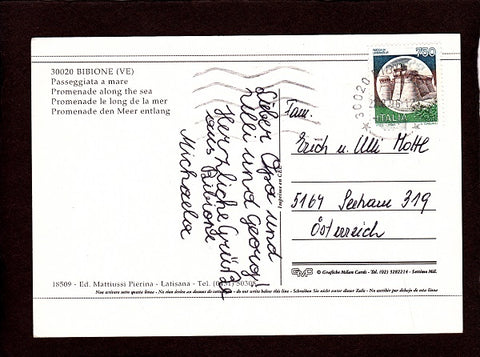 30020 BIBIONE (VE)
Passeggiata a mare
Promenade along the sea
Promenade le long de la mer
Promenade den Meer entlang
Lieber Opa und
Lilli und Georg!
Herzliche Grüße
aus Bibione
Michaela
750
ITALIA
30020
Fam.
Erich u. Ulli Mottl
5164 Seeham 319
Österreich
© Grafiche Milan Cards - Tel. (02) 5282214 - Settimo Mil.
18509 - Ed. Mattiussi Pierina - Latisana - Tel.
Non scrivere sotto questa linea - Ne rien écrire au-dessous de cette ligne - do not write below this line - Schreiben Sie nicht unter dieser Zeile - No escribir por debajo de esta línea